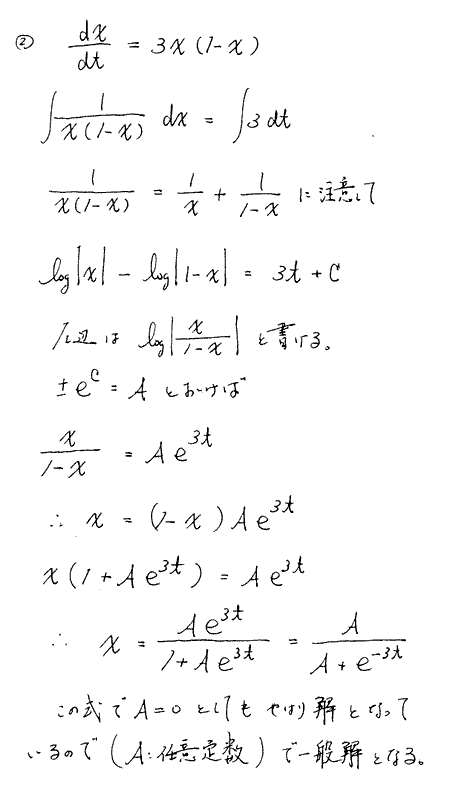 ② dx/dt = 3x(1-x)
∫ 1/(x(1-x)) dx = ∫3dt
1/(x(1-x)) = 1/x + 1/(1-x) に注意して
log|x| - log|1-x| = 3t + C
左辺は log|x/(1-x)| と書ける。
±e^C = A とおけば
x/(1-x) = Ae^{3t}
∴ x = (1-x)Ae^{3t}
x(1+Ae^{3t}) = Ae^{3t}
∴ x = Ae^{3t}/(1+Ae^{3t}) = A/(A+e^{-3t})
この式でA=0としてもやはり解となって
いるので(A:任意定数)で一般解となる。